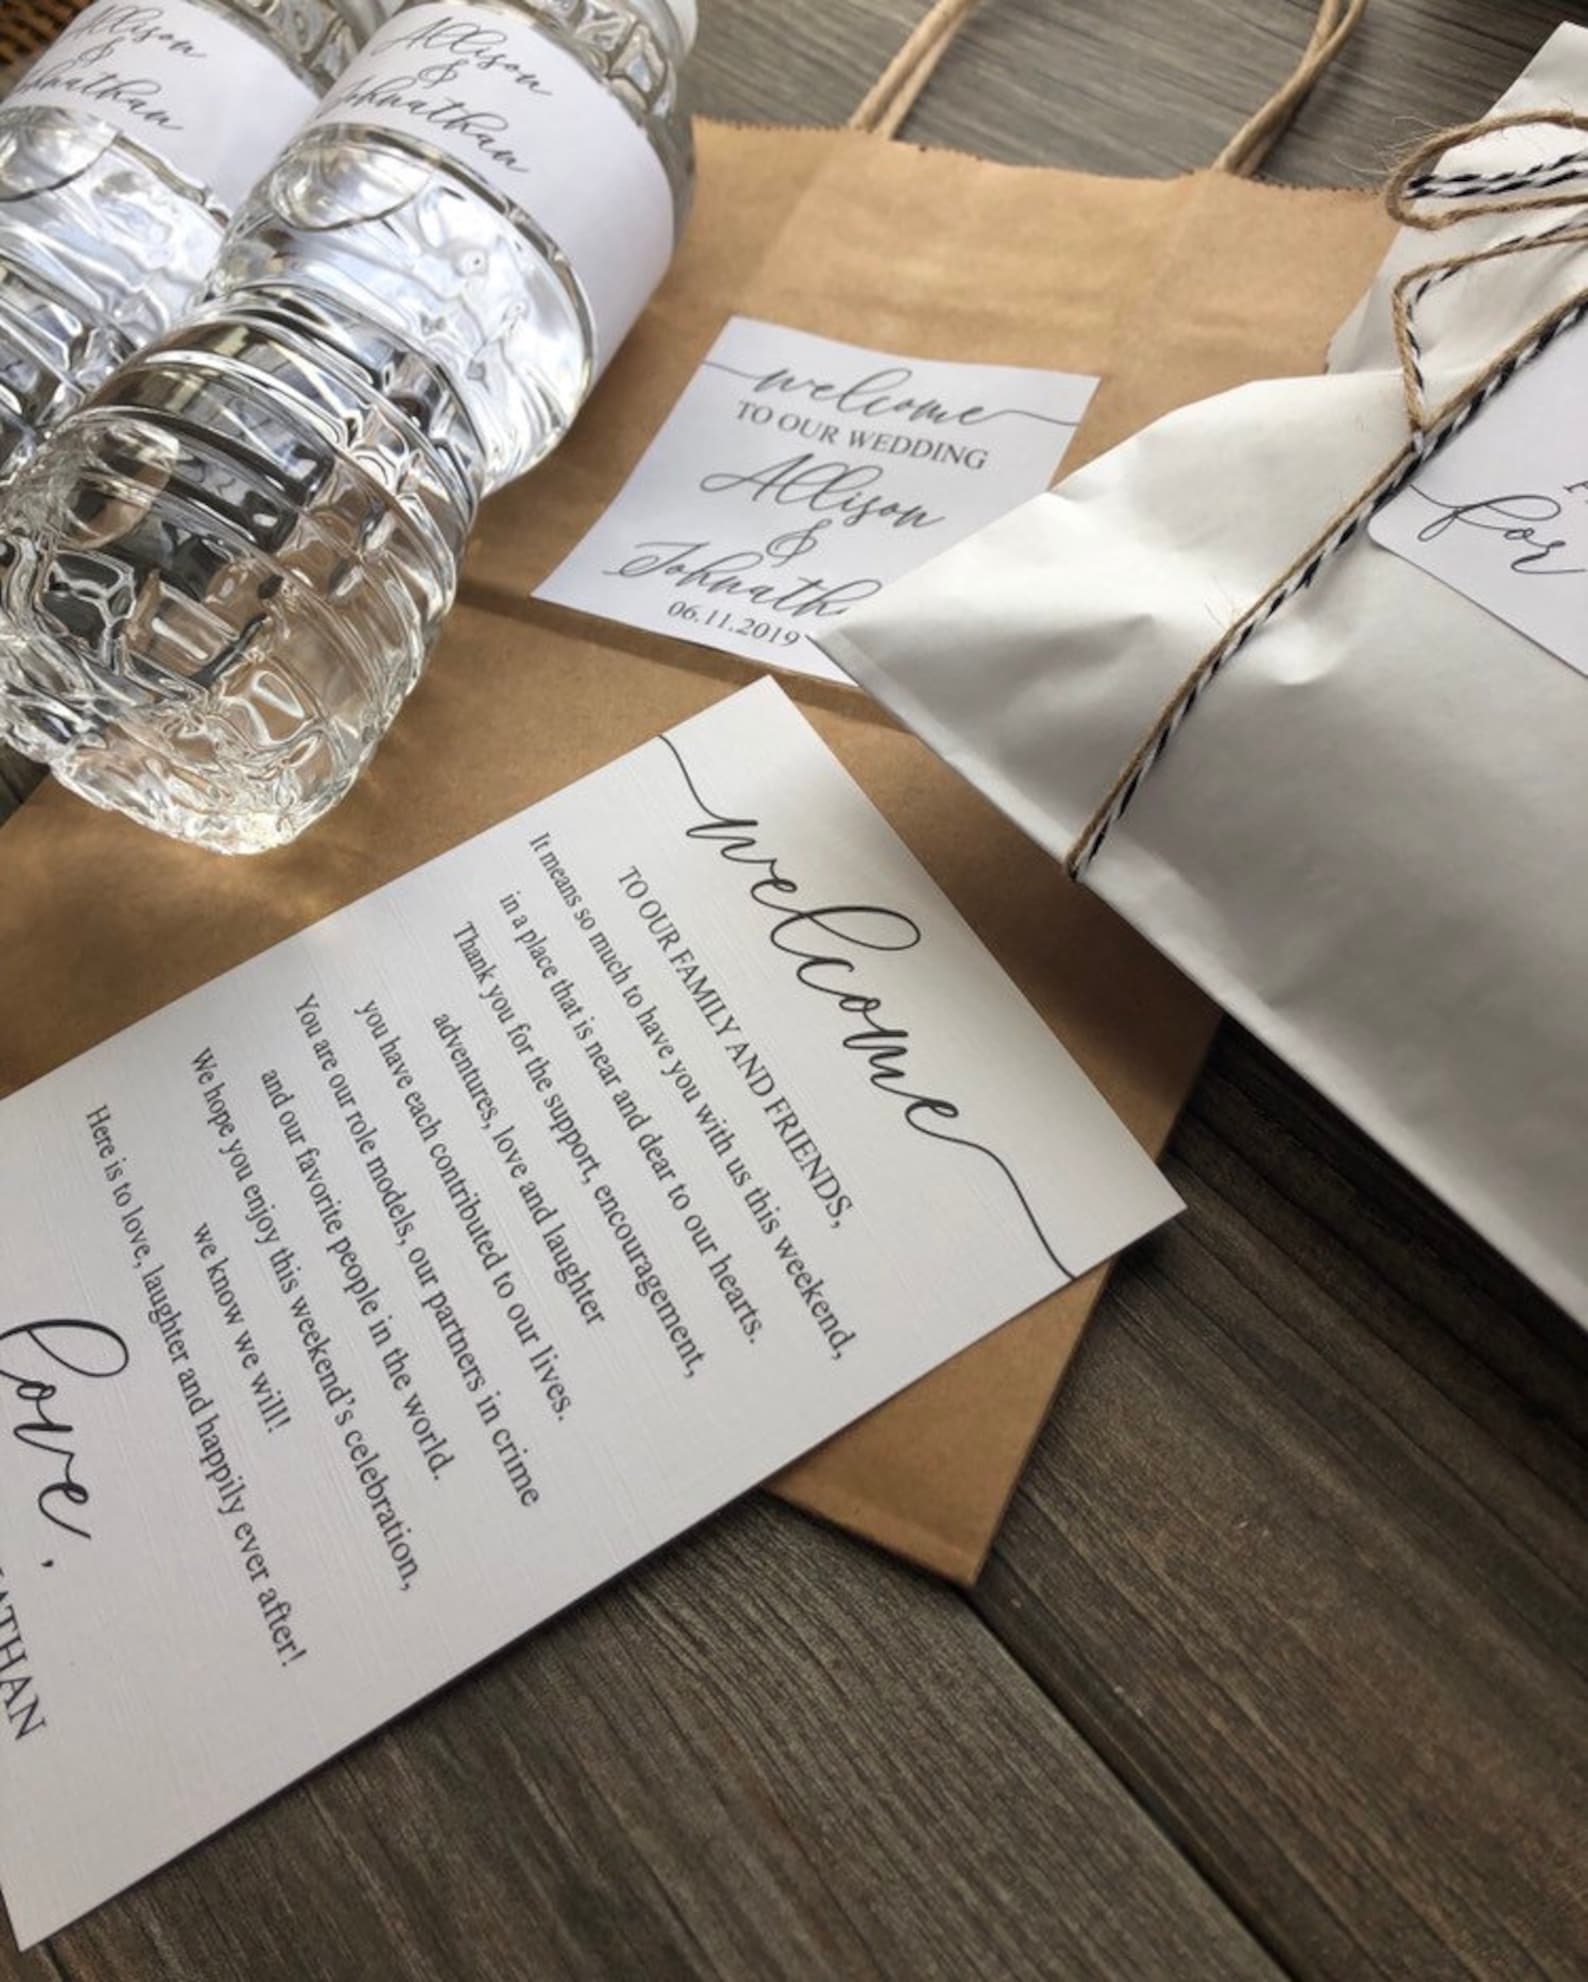 Allison
&
Johnathan
Allison
&
Johnathan
welcome
TO OUR WEDDING
Allison
&
Johnath
06.11.2019
for
welcome
TO OUR FAMILY AND FRIENDS,
It means so much to have you with us this weekend,
in a place that is near and dear to our hearts.
Thank you for the support, encouragement,
adventures, love and laughter
you have each contributed to our lives.
You are our role models, our partners in crime
and our favorite people in the world.
We hope you enjoy this weekend's celebration,
we know we will!
Here is to love, laughter and happily ever after!
love,
ATHAN